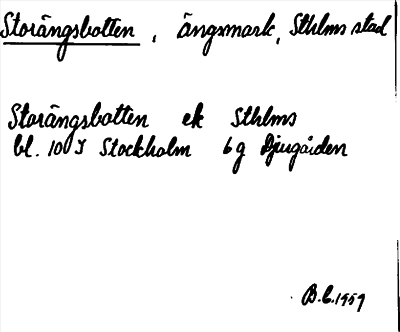 Storängsbotten, ängsmark, Sthlms stad
Storängsbotten ek Sthlms
bl. 10 I Stockholm 6g Djurgården
B.C. 1959